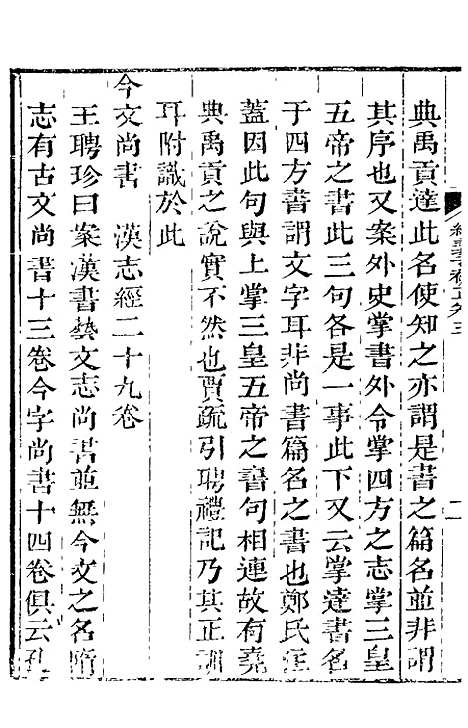 典禹貢達此名使知之亦謂是書之篇名並非謂
其序也又案外史掌書外令掌四方之志掌三皇
五帝之書此三句各是一事此下又云掌達書名
于四方書謂文字耳非尚書篇名之書也鄭氏注
蓋因此句與上掌三皇五帝之書句相連故有堯
典禹貢之說實不然也賈疏引聘禮記乃其正訓
耳附識於此
今文尚書　漢志經二十九卷
王聘珍曰案漢書藝文志尚書並無今文之名隋
志有古文尚書十三卷今字尚書十四卷俱云孔